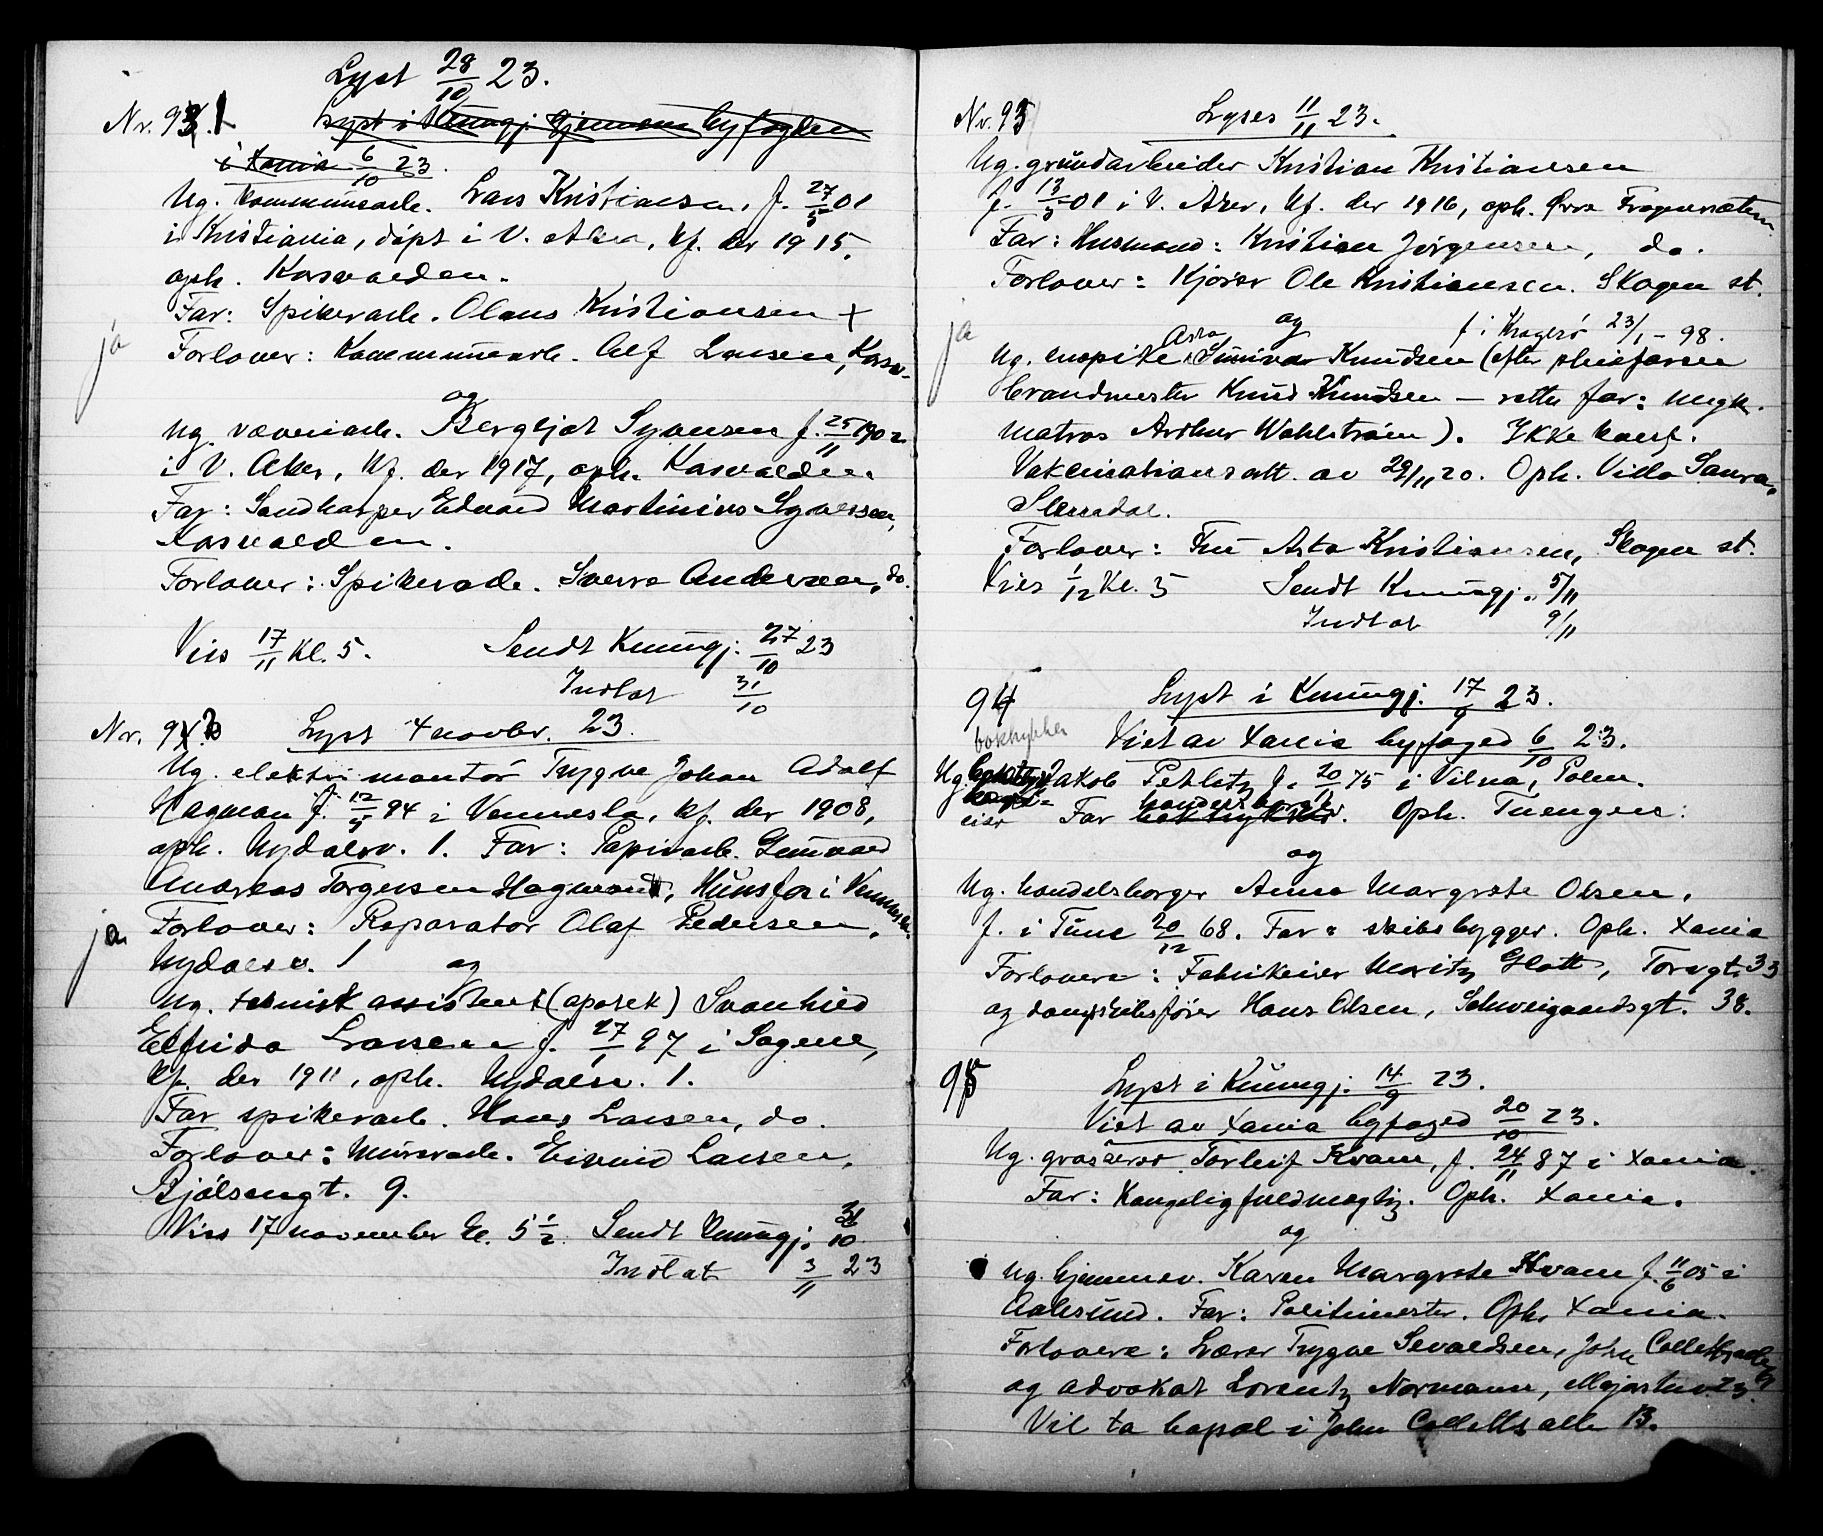 Lyst 28/10 23.
Nr. 91 Lyst i Kunngj. gjennem byfogden
i Xania 6/10 23.
Ug. kommunearb. Lars Kristiansen, f. 27/5 01
i Kristiania, døpt i V. Aker, kf. der 1915,
oph. Korsvolden.
Far: Spikerarb. Olaus Kristiansen +
ja
Forlover: Kommunearb. Alf Larsen, Korsv-
og
Ug. væveriarb. Bergljot Syversen f. 25/11 1902
i V. Aker, kf. der 1917, oph. Korsvolden.
Far: Sandharper Edvard Martinius Syversen,
Korsvolden.
Forlover: Spikerarb. Sverre Andersen, do.
Vies 17/11 kl. 5. Sendt Kunngj. 27/10 23
Indtat 31/10
Nr. 92 Lyst 4 novbr. 23.
Ug. elektr. montør Trygve Johan Adolf
Hagman f. 12/5 94 i Vennesla, kf. der 1908,
oph. Nydalsv. 1. Far: Papirarb. Gunvald
Andreas Torgersen Hagman, Hunsfos i Vennesla.
ja
Forlover: Reparatør Olaf Pedersen,
Nydalsv. 1 og
Ug. teknisk assistent (apotek) Svanhild
Elfrida Larsen f. 27/1 97 i Sagene,
kf. der 1911, oph. Nydalsv. 1.
Far spikerarb. Hans Larsen, do.
Forlover: Murerarb. Eivind Larsen,
Bjølsengt. 9.
Vies 17 november kl. 5 1/2 Sendt Kunngj. 31/10
Indtat 3/11 23
Nr. 93 Lyses 11/11 23.
Ug. grundarbeider Kristian Kristiansen
f. 13/3 01 i V. Aker, kf. der 1916, oph. Øvre Frognersæteren
Far: Husmand: Kristian Jørgensen, do.
Forlover: Kjører Ole Kristiansen. Skogen st.
og f. i Kragerø 23/1 - 98.
ja
Ug. Asta Sunniva Knudsen (efter pleiefaren
brandmester Knud Knudsen — rette far: ungk.
matros Arthur Wahlstrøm). Ikke konf.
Vakcinationsatt. av 29/11 20. Oph. Villa Sanra,
Slemdal.
Forlover: Fru Asta Kristiansen, Skogen st.
Vies 1/12 kl. 5 Sendt Kunngj. 5/11
Indtat 9/11
94 Lyst i Kunngj. 17/9 23.
Viet av Xania byfoged 6/10 23.
boktrykker
Ug. Jakob Pehletz f. 20/11 75 i Vilna, Polen.
eier Far handelsborger. Oph. Tuengen:
og
Ug. handelsborger Anna Margrete Olsen,
f. i Tune 20/12 68. Far: skibsbygger. Oph. Xania
Forlovere: Fabrikeier Moritz Glott, Torvgt. 33
og dampskibsfører Hans Olsen, Schweigaardsgt. 38.
95 Lyst i Kunngj. 14/9 23.
Viet av Xania byfoged 20/10 23.
Ug. grosserer Torleif Kvam, f. 24/11 87 i Xania.
Far: Kongelig fuldmægtig. Oph. Xania.
og
Ug. hjemmev. Karen Margrete Kvam f. 11/6 05 i
Aalesund. Far: Politimester. Oph. Xania.
Forlovere: Lærer Trygve Sevaldsen, John Colletts alle
og advokat Lorentz Normann, Majorstuv. 23.
Vil ta bopæl i John Colletts alle 13.